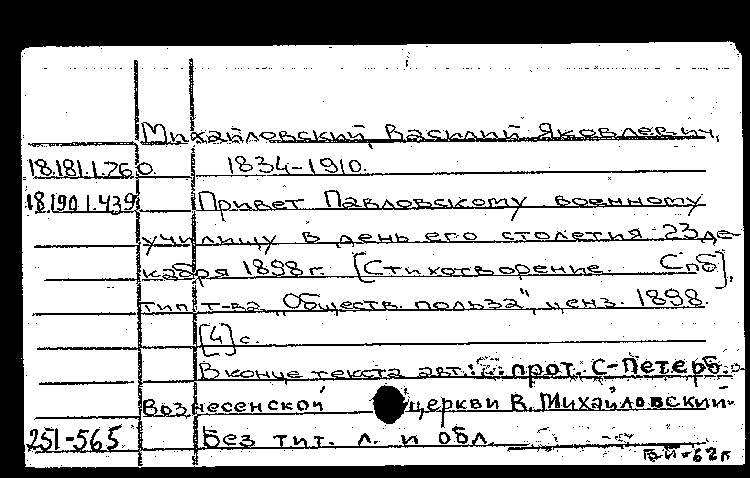 Михайловский, Василий Яковлевич,
18.181.1.260. 1834-1910.
18.190.1.439 Привет Павловскому военному
училищу в день его столетия 23 де-
кабря 1898 г. [Стихотворение. Спб],
тип. т-ва "Обществ. польза", ценз. 1898.
[4] с.
В конце текста авт.: прот. С-Петерб.
Вознесенской церкви В. Михайловский.
251-565 Без тит. л. и обл.
БЙ-62г